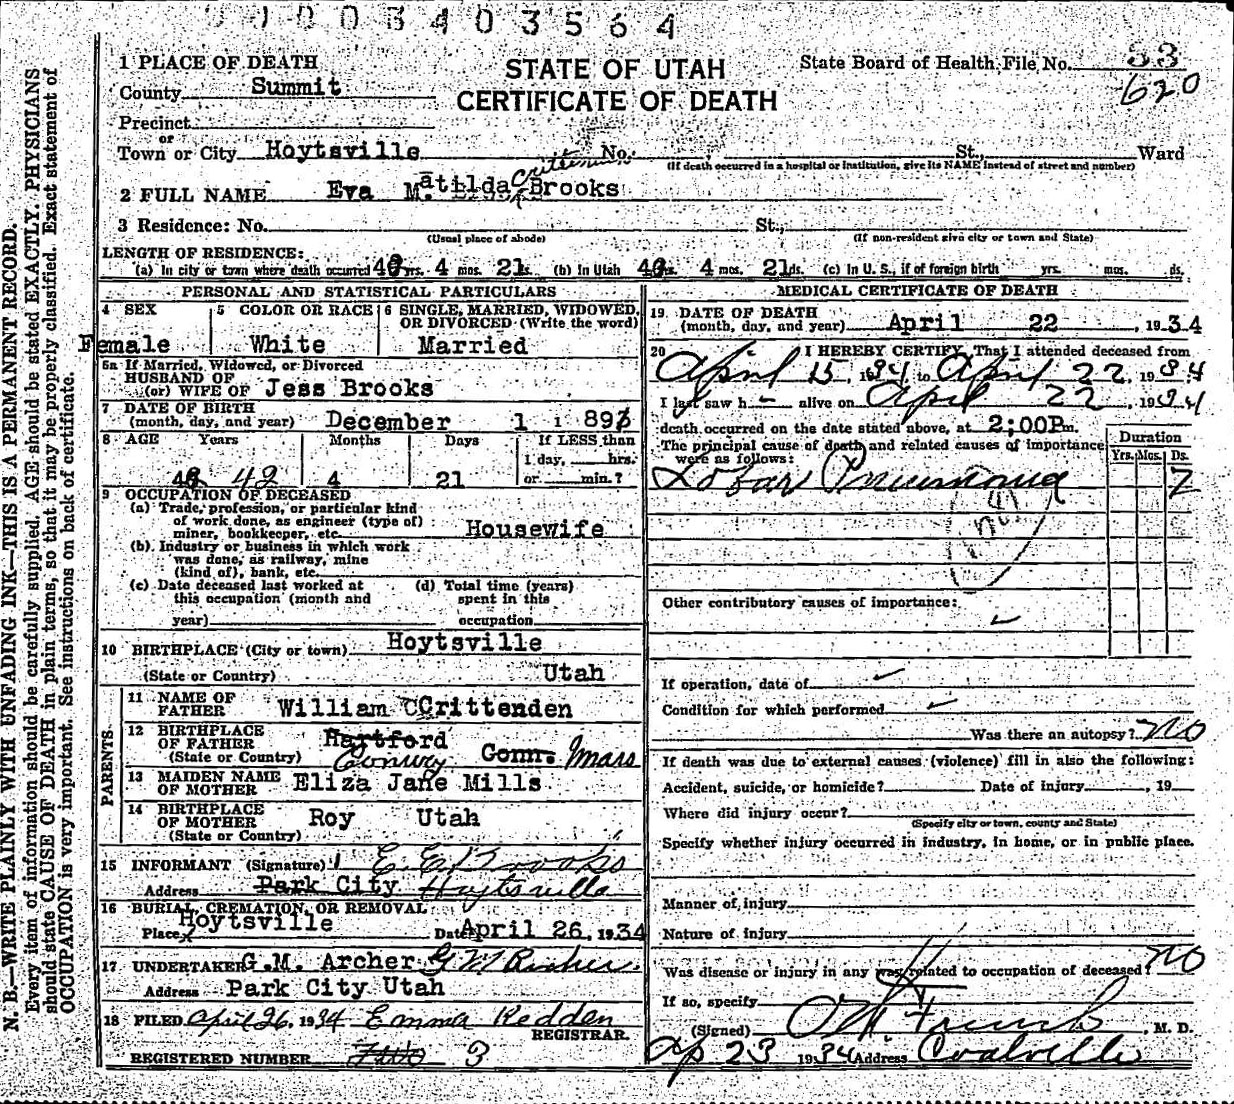 0 0 0 0 3 4 0 3 5 6 4
1 PLACE OF DEATH
STATE OF UTAH
CERTIFICATE OF DEATH
State Board of Health File No. 33
620
County Summit
Precinct
or
Town or City Hoytsville No. St., Ward
(If death occurred in a hospital or institution, give its NAME instead of street and number)
2 FULL NAME Eva Matilda Crittenden Brooks
3 Residence: No. St.,
(Usual place of abode) (If non-resident give city or town and State)
LENGTH OF RESIDENCE:
(a) In city or town where death occurred yrs. 4 mos. 21 ds. (b) In Utah yrs. 4 mos. 21 ds. (c) In U. S., if of foreign birth yrs. mos. ds.
PERSONAL AND STATISTICAL PARTICULARS
4 SEX
Female
5 COLOR OR RACE
White
6 SINGLE, MARRIED, WIDOWED,
OR DIVORCED (Write the word)
Married
5a If Married, Widowed, or Divorced
HUSBAND OF
(or) WIFE OF Jess Brooks
7 DATE OF BIRTH
(month, day, and year) December 1 189
8 AGE Years Months Days If LESS than
1 day, hrs.
42 4 21 or min.?
9 OCCUPATION OF DECEASED
(a) Trade, profession, or particular kind
of work done, as engineer (type of)
miner, bookkeeper, etc. Housewife
(b) Industry or business in which work
was done, as railway, mine
(kind of), bank, etc.
(c) Date deceased last worked at
this occupation (month and
year)
(d) Total time (years)
spent in this
occupation
10 BIRTHPLACE (City or town) Hoytsville
(State or Country) Utah
PARENTS.
11 NAME OF
FATHER William C Crittenden
12 BIRTHPLACE
OF FATHER
(State or Country)
Hartford
Conway Conn. Mass
13 MAIDEN NAME
OF MOTHER Eliza Jane Mills
14 BIRTHPLACE
OF MOTHER
(State or Country) Roy Utah
15 INFORMANT (Signature) E. E. Brooks
Address Park City Hoytsville
16 BURIAL, CREMATION, OR REMOVAL
Place Hoytsville Date April 26, 1934
17 UNDERTAKER G.M. Archer G M Archer
Address Park City Utah
18 FILED April 26, 1934 Emma Redden
REGISTRAR.
REGISTERED NUMBER 3
MEDICAL CERTIFICATE OF DEATH
19 DATE OF DEATH
(month, day, and year) April 22, 1934
20 I HEREBY CERTIFY, That I attended deceased from
April 15, 1934, to April 22, 1934
I last saw h alive on April 22, 1934
death occurred on the date stated above, at 2;00Pm.
The principal cause of death and related causes of importance
were as follows:
Duration
Yrs. Mos. Ds.
Lobar Pneumonia 7
Other contributory causes of importance:
If operation, date of
Condition for which performed
Was there an autopsy? No
If death was due to external causes (violence) fill in also the following:
Accident, suicide, or homicide? Date of injury , 19
Where did injury occur?
(Specify city or town, county and State)
Specify whether injury occurred in industry, in home, or in public place.
Manner of injury
Nature of injury
Was disease or injury in any way related to occupation of deceased? No
If so, specify
(Signed) , M. D.
Ap 23 1934 Address Coalville
N. B.—WRITE PLAINLY WITH UNFADING INK—THIS IS A PERMANENT RECORD.
Every item of information should be carefully supplied. AGE should be stated EXACTLY. PHYSICIANS
should state CAUSE OF DEATH in plain terms, so that it may be properly classified. Exact statement of
OCCUPATION is very important. See instructions on back of certificate.